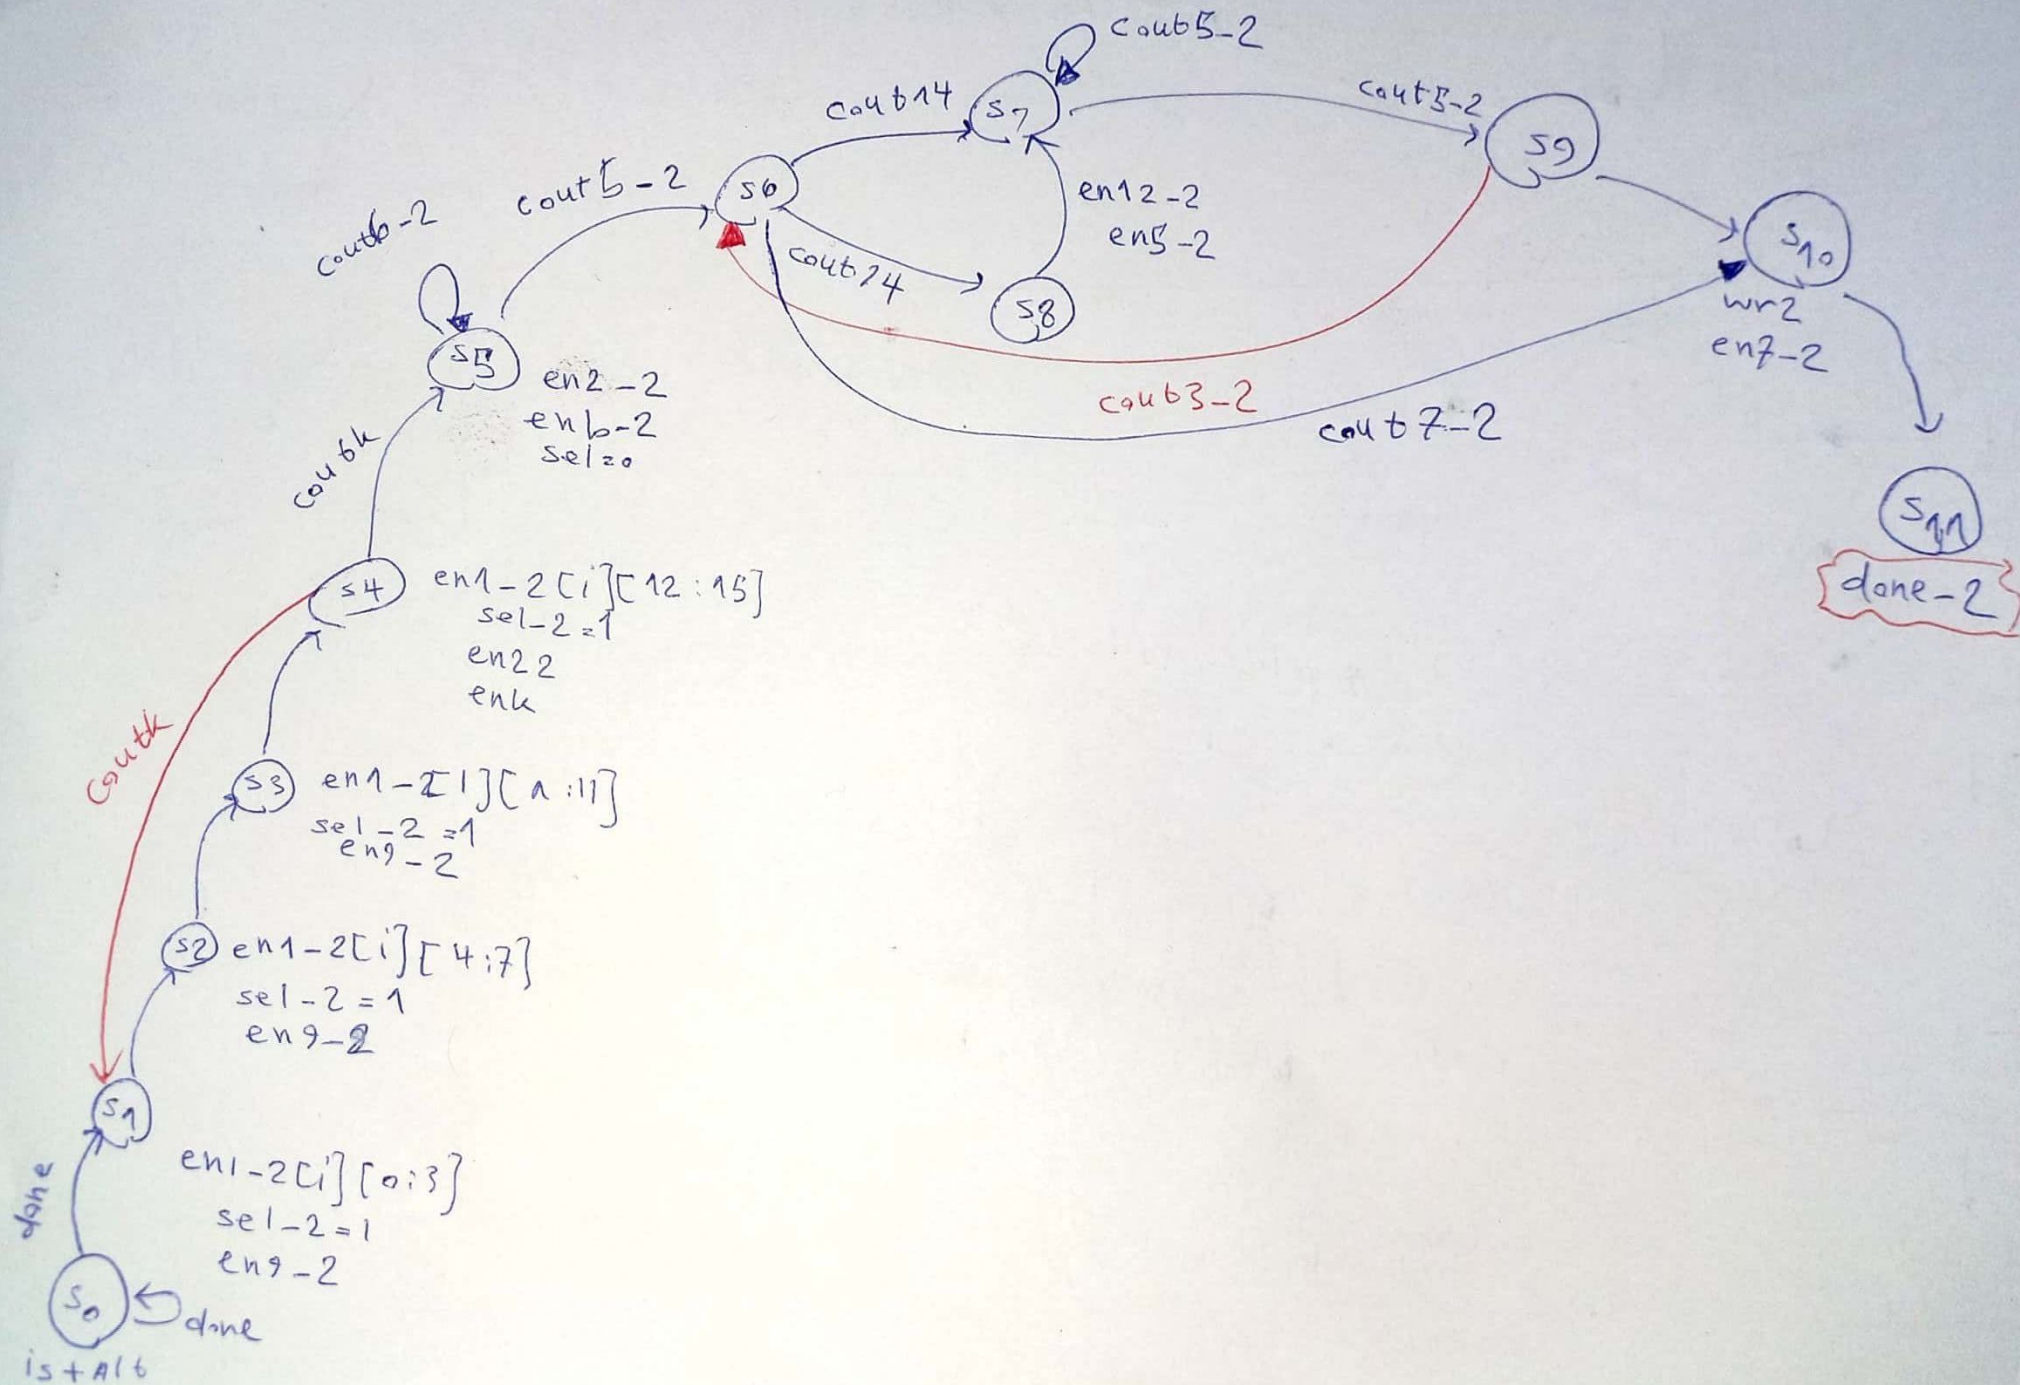 cout5-2
cout14
s7
cout5-2
s9
cout5-2
s6
en12-2
en5-2
cout6-2
cout14
s8
s10
wr2
en7-2
s5
en2-2
en6-2
sel=0
cout3-2
cout7-2
coutk
s11
done-2
s4
en1-2[i][12:15]
sel-2=1
en22
enk
coutk
s3
sel-2=1
en9-2
s2
en1-2[i][4:7]
sel-2=1
en9-2
s1
done
en1-2[i][0:3]
sel-2=1
en9-2
s0
done